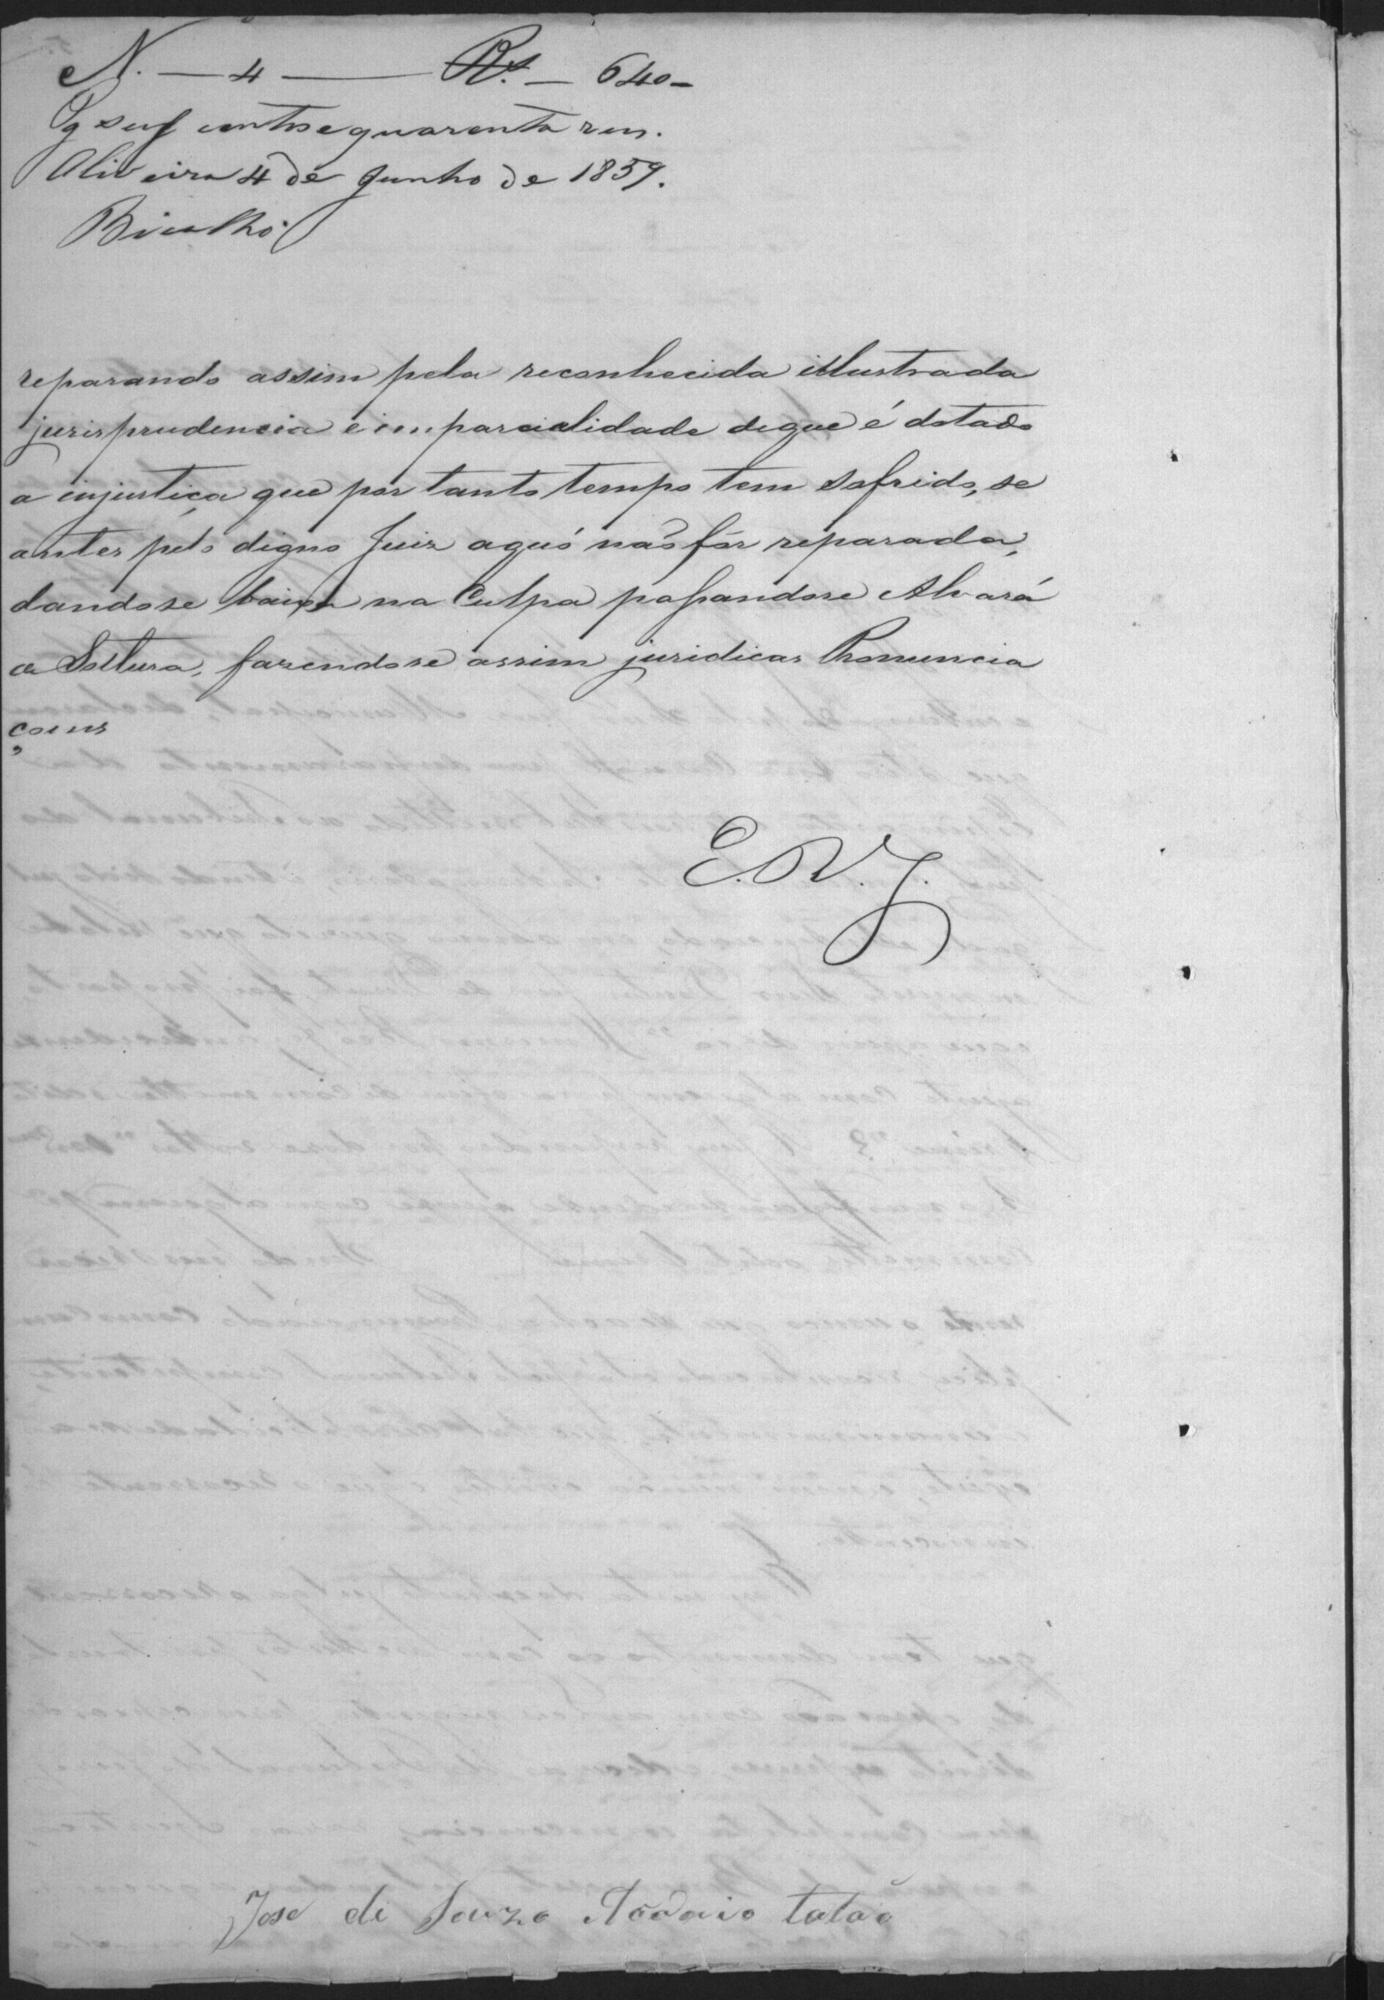 N. — 4 — Rs. — 640 —
Pg seis centos e quarenta reis.
Oliveira 4 de Junho de 1859.
Bicalho
reparando assim pela reconhecida illustrada
jurisprudencia e imparcialidade de que é dotado
a injustiça que por tanto tempo tem sofrido, se
antes pelo digno Juiz aquó não fôr reparada,
dandose baixa na Culpa passandose Alvará
a Soltura, fazendose assim juridicas Pronuncia
çoens
E. R. J.
José de Souza tatão